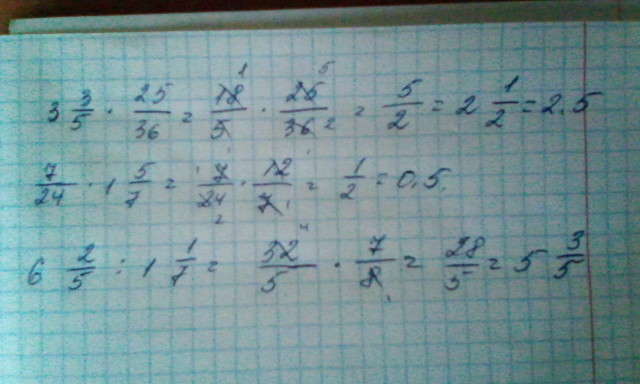 3 3/5 · 25/36 = 18/5 · 25/36 = 5/2 = 2 1/2 = 2.5
7/24 · 1 5/7 = 7/24 · 12/7 = 1/2 = 0.5.
6 2/5 : 1 1/7 = 32/5 · 7/8 = 28/5 = 5 3/5